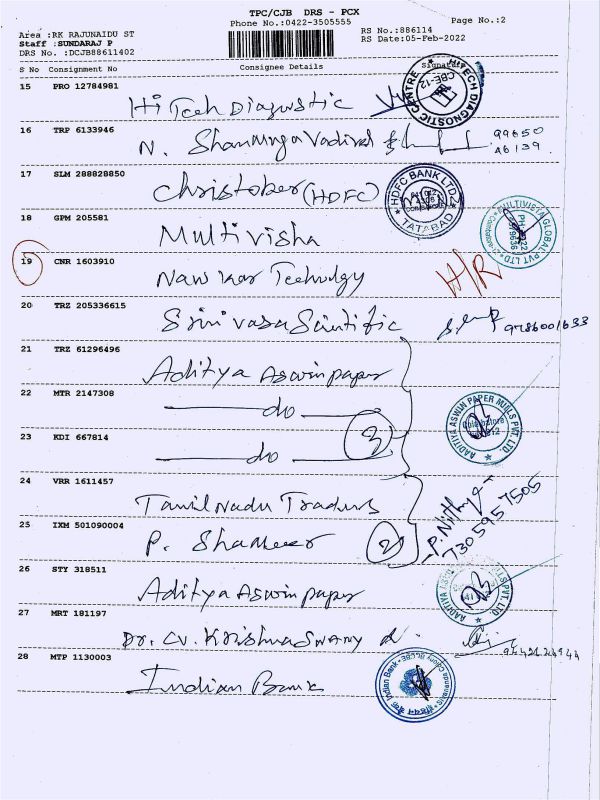 TPC/CJB DRS - PCX
Phone No.:0422-3505555
Page No.:2
Area :RK RAJUNAIDU ST
Staff :SUNDARAJ P
DRS No. :DCJB88611402
RS No.:886114
RS Date:05-Feb-2022
S No Consignment No Consignee Details Signature
15 PRO 12784981
Hi Tech Diagnostic
HITECH DIAGNOSTIC CENTRE
CBE-12
16 TRP 6133946
N. Shanmuga Vadivel
99650
26139
17 SLM 288828850
Christober (HDFC)
HDFC BANK LTD
TATABAD
18 GPM 205581
Multivisha
MULTIVISTA GLOBAL PVT LTD
19 CNR 1603910
Nawkar Technolgy
H/R
20 TRZ 205336615
Srinivasa Scintific
9786001633
21 TRZ 61296496
Aditya Aswin paper
22 MTR 2147308
do
3
AADITIYA ASWIN PAPER MILLS PVT. LTD.
Coimbatore
23 KDI 667814
do
24 VRR 1611457
Tamil Nadu Traders
P. Nithya
7305957505
25 IXM 501090004
P. Shameer
2
26 STY 318511
Aditya Aswin paper
27 MRT 181197
Dr. CV. Krishnaswamy
28 MTP 1130003
Indian Bank
Indian Bank